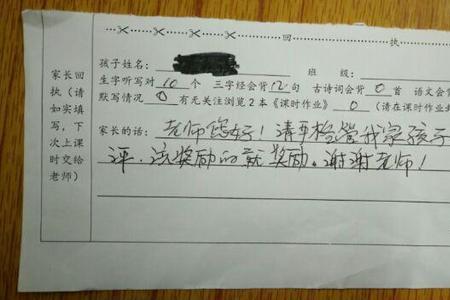 回 执
孩子姓名: 班 级:
生字听写对10个 三字经会背12句 古诗词会背0首 语文会
默写情况0有无关注浏览2本《课时作业》0(请在课时作业
家长的话:老师您好!请严格管我家孩子
评,该奖励的就奖励。谢谢老师!
家长回
执(请
如实填
写,下
次上课
时交给
老师)